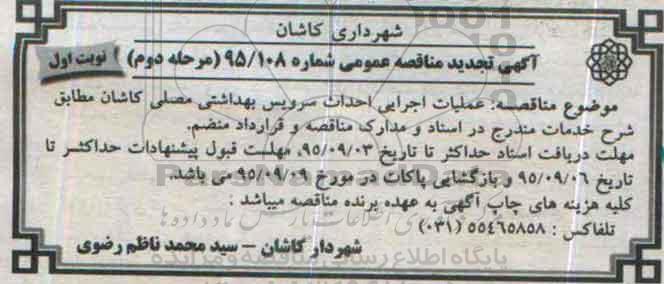 شهرداری کاشان
آگهی تجدید مناقصه عمومی شماره ۹۵/۱۰۸ (مرحله دوم)
نوبت اول
موضوع مناقصه: عملیات اجرایی احداث سرویس بهداشتی مصلی کاشان مطابق
شرح خدمات مندرج در اسناد و مدارک مناقصه و قرارداد منضم.
مهلت دریافت اسناد حداکثر تا تاریخ ۹۵/۰۹/۰۳، مهلت قبول پیشنهادات حداکثر تا
تاریخ ۹۵/۰۹/۰۶ و بازگشایی پاکات در مورخ ۹۵/۰۹/۰۹ می باشد.
ParsNamadData
کلیه هزینه های چاپ آگهی به عهده برنده مناقصه میباشد :
تلفاکس : ۵۵۴۶۵۸۵۸ (۰۳۱)
شهردار کاشان – سید محمد ناظم رضوی
پایگاه اطلاع رسانی مناقصه و مزایده